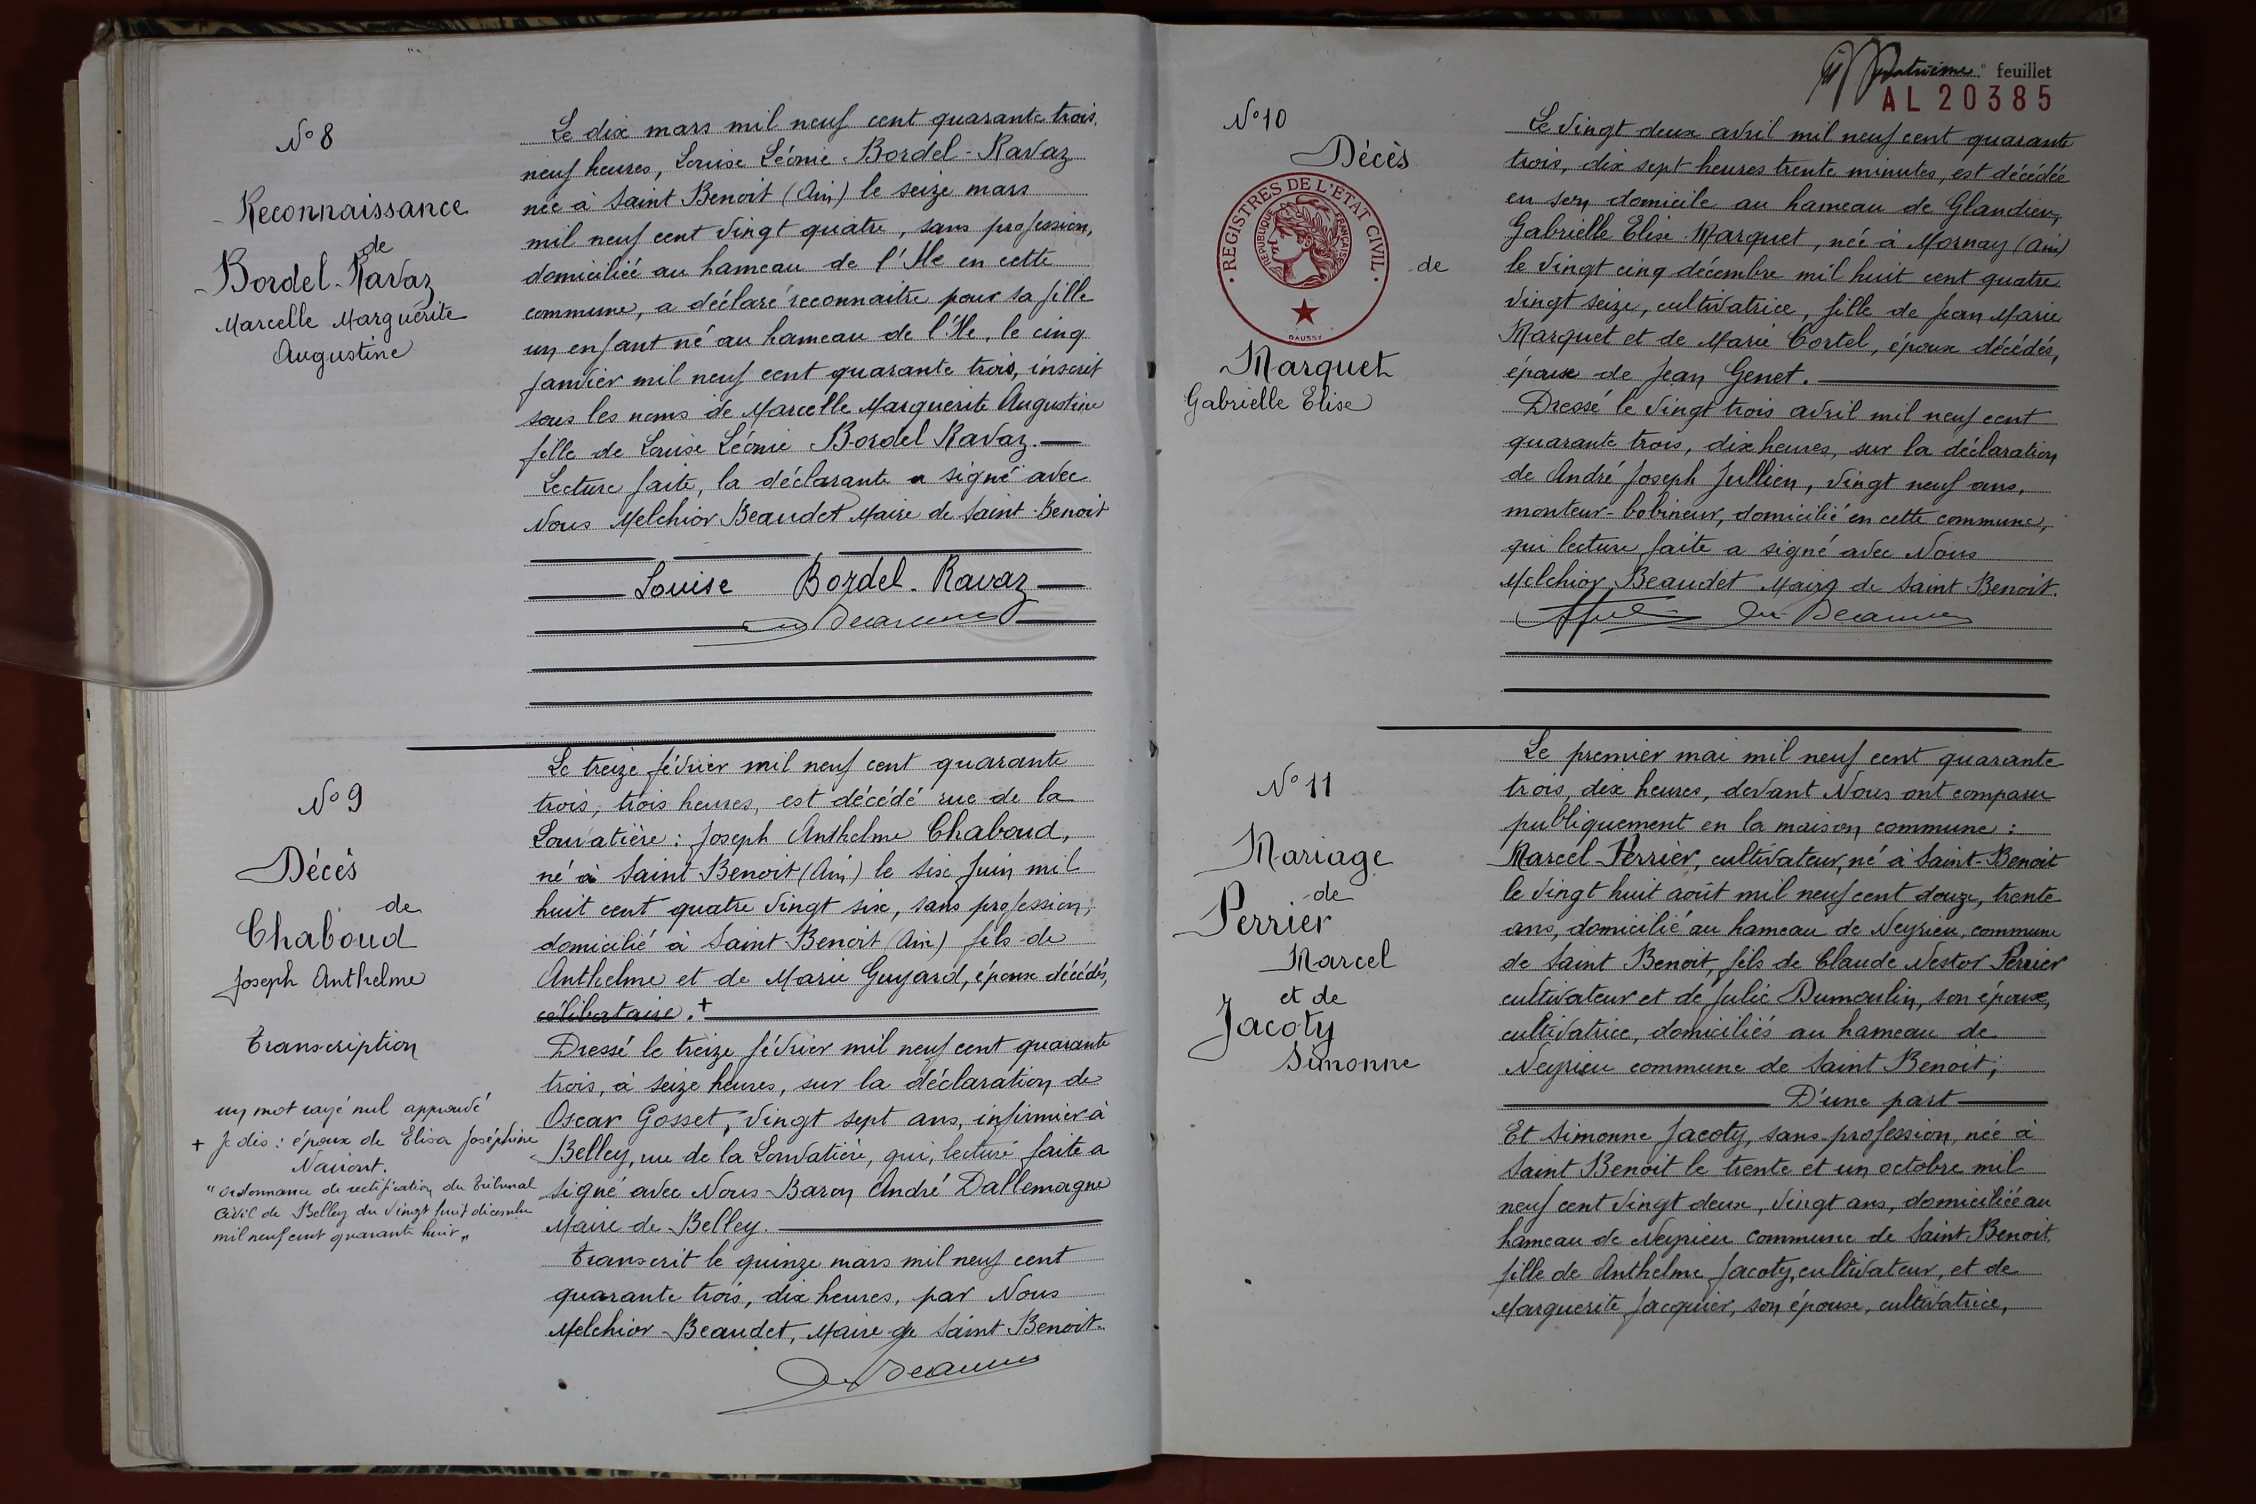 N° 8
Reconnaissance
de
Bordel-Ravaz
Marcelle Marguerite
Augustine
Le dix mars mil neuf cent quarante trois,
neuf heures, Louise Léonie Bordel-Ravaz
née à Saint Benoit (Ain) le seize mars
mil neuf cent vingt quatre, sans profession,
domiciliée au hameau de l'Ile en cette
commune, a déclaré reconnaitre pour sa fille
un enfant né au hameau de l'Ile, le cinq
janvier mil neuf cent quarante trois, inscrit
sous les noms de Marcelle Marguerite Augustine
fille de Louise Léonie Bordel Ravaz.
Lecture faite, la déclarante a signé avec
Nous Melchior Beaudet Maire de Saint-Benoit
Louise Bordel-Ravaz
N° 9
Décès
de
Chaboud
Joseph Anthelme
Transcription
un mot rayé nul approuvé
+ Je dis : époux de Elisa Joséphine
"Ordonnance de rectification du Tribunal
Civil de Belley du vingt huit décembre
mil neuf cent quarante huit"
Le treize février mil neuf cent quarante
trois, trois heures, est décédé rue de la
Louvatière : Joseph Anthelme Chaboud,
né à Saint Benoit (Ain) le six Juin mil
huit cent quatre vingt six, sans profession,
domicilié à Saint Benoit (Ain) fils de
Anthelme et de Marie Guyard, époux décédés,
célibataire. +
Dressé le treize février mil neuf cent quarante
trois, à seize heures, sur la déclaration de
Oscar Gosset, vingt sept ans, infirmier à
Belley, rue de la Louvatière, qui, lecture faite a
signé avec Nous Baron André Dallemagne
Maire de Belley.
Transcrit le quinze mars mil neuf cent
quarante trois, dix heures, par Nous
Melchior Beaudet, Maire de Saint Benoit.
Quatrième feuillet
AL 20385
N° 10
Décès
REGISTRES DE L'ETAT CIVIL
REPUBLIQUE FRANÇAISE
DAUSSY
de
Marquet
Gabrielle Elise
Le vingt deux avril mil neuf cent quarante
trois, dix sept heures trente minutes, est décédée
en son domicile au hameau de Glandieu,
Gabrielle Elise Marquet, née à Mornay (Ain)
le vingt cinq décembre mil huit cent quatre
vingt seize, cultivatrice, fille de Jean Marie
Marquet et de Marie Cortel, époux décédés,
épouse de Jean Genet.
Dressé le vingt trois avril mil neuf cent
quarante trois, dix heures, sur la déclaration
de André Joseph Jullien, vingt neuf ans,
monteur-bobineur, domicilié en cette commune,
qui lecture faite a signé avec Nous
Melchior Beaudet Maire de Saint Benoit.
N° 11
Mariage
de
Perrier
Marcel
et de
Jacoty
Simonne
Le premier mai mil neuf cent quarante
trois, dix heures, devant Nous ont comparu
publiquement en la maison commune :
Marcel Perrier, cultivateur, né à Saint-Benoit
le vingt huit août mil neuf cent douze, trente
ans, domicilié au hameau de Neyrieu, commune
de Saint Benoit, fils de Claude Nestor Perrier
cultivateur et de Julie Dumoulin, son épouse,
cultivatrice, domiciliés au hameau de
Neyrieu commune de Saint Benoit ;
D'une part
Et Simonne Jacoty, sans profession, née à
Saint Benoit le trente et un octobre mil
neuf cent vingt deux, vingt ans, domiciliée au
hameau de Neyrieu commune de Saint Benoit
fille de Anthelme Jacoty, cultivateur, et de
Marguerite Jacquier, son épouse, cultivatrice,